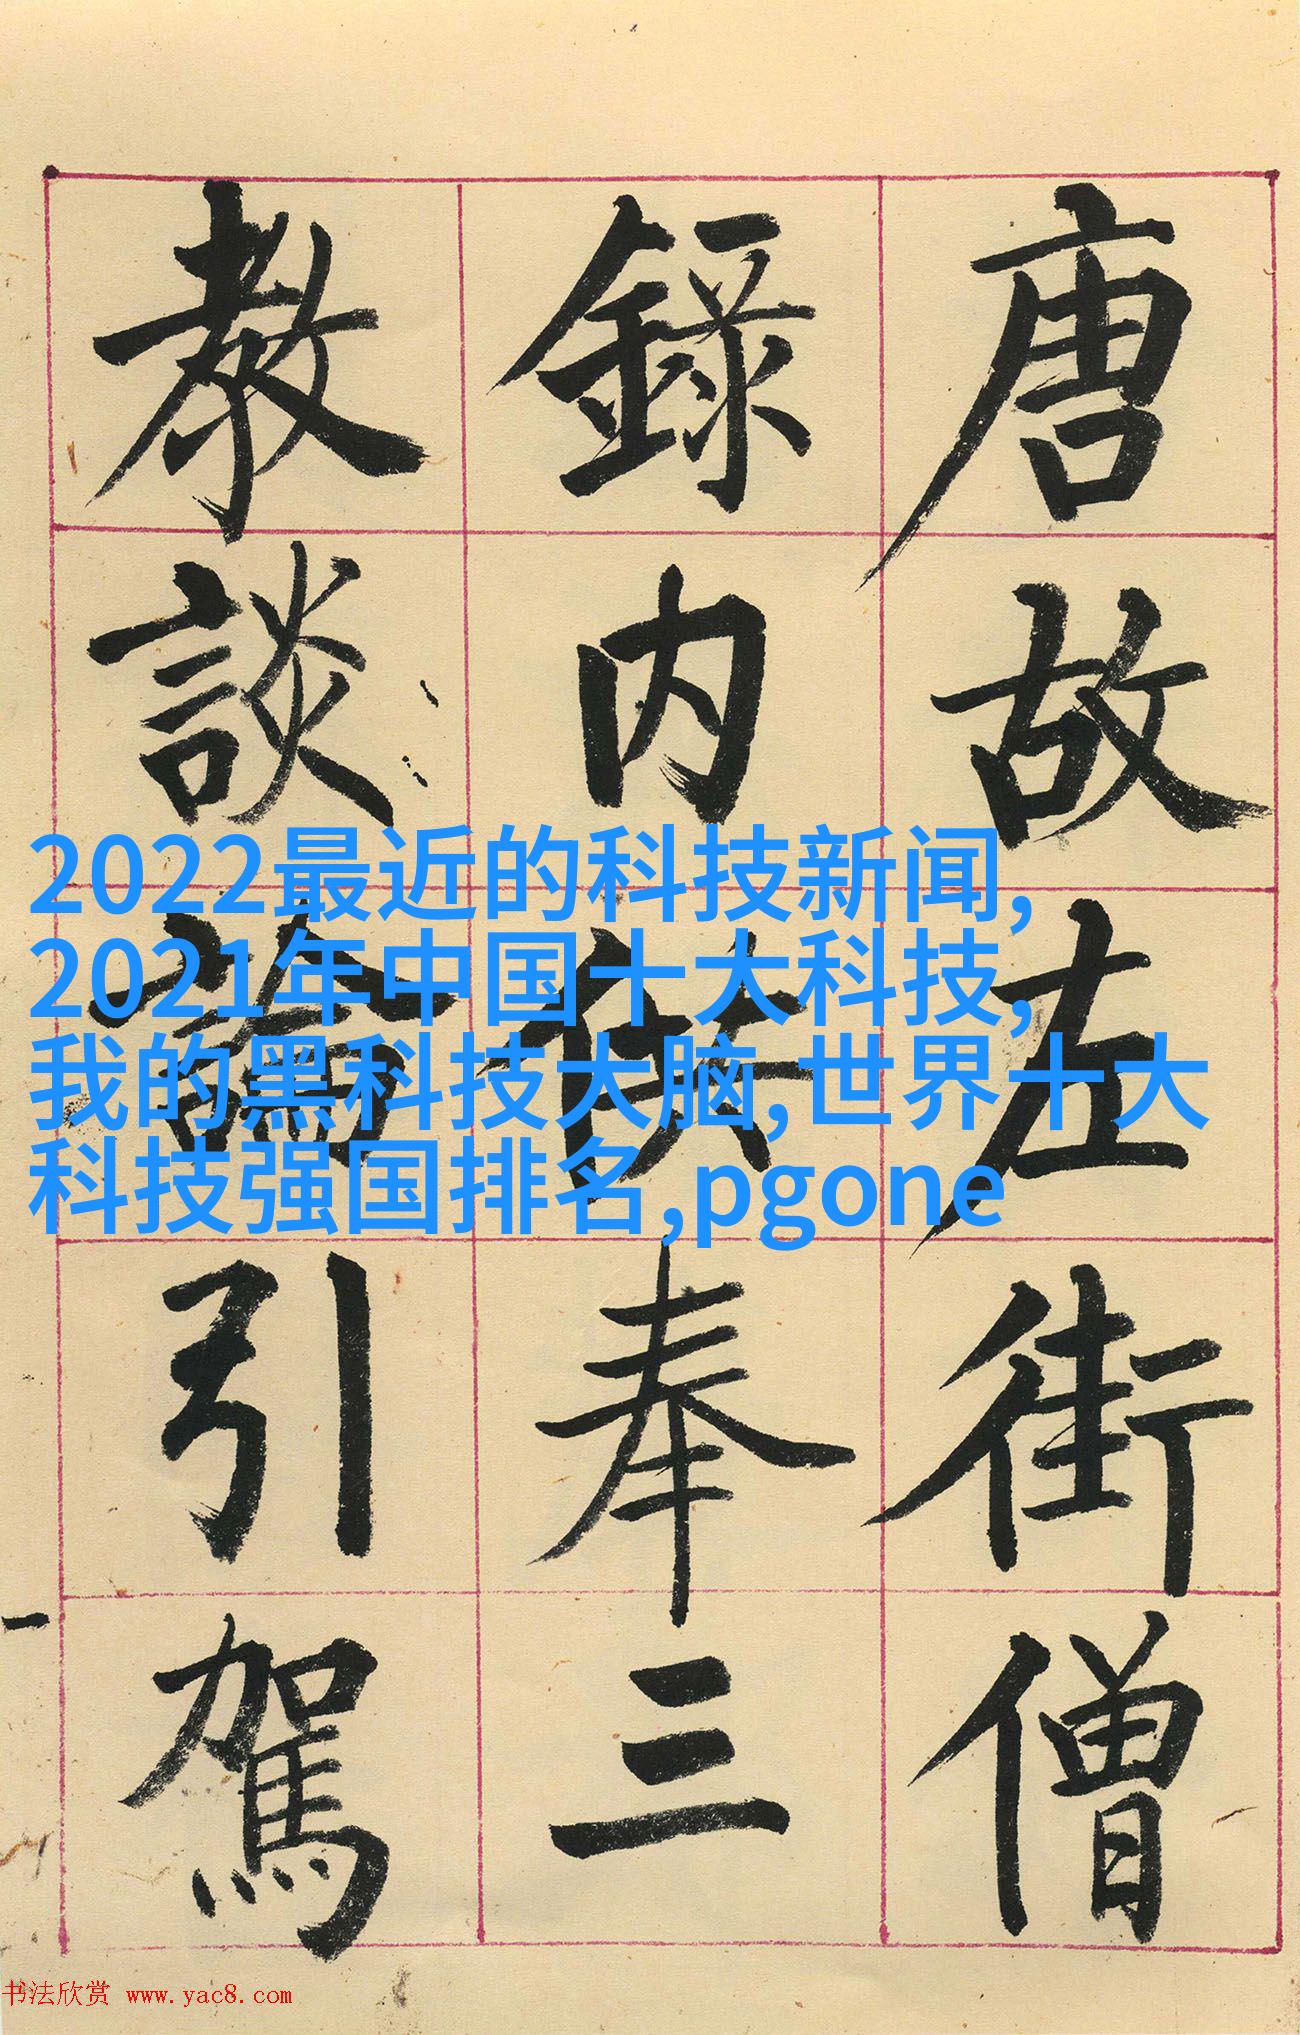 唐故左街僧
錄内供奉三
教談論引駕
2022最近的科技新闻,
2021年中国十大科技,
我的黑科技大脑,世界十大
科技强国排名,pgone
书法欣赏 www.yac8.com